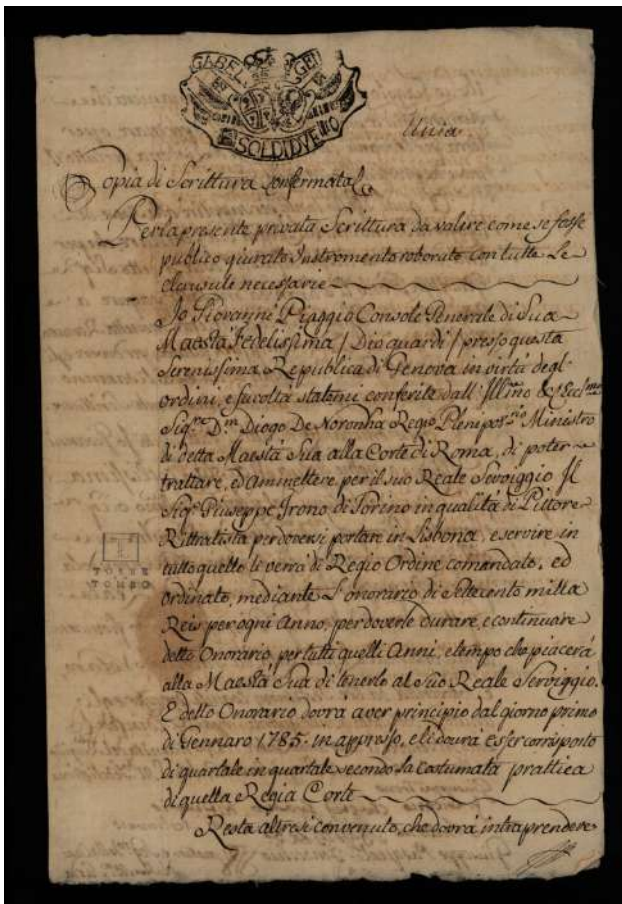 GABEL GEN
SOLDI DVE
Unica
Copia di Scrittura Confermata
Per la presente privata Scrittura da valire come se fosse
publico giurato Instromento roborato con tutte Le
clausule necessarie
Io Giovanni Piaggio Console Generale di Sua
Maestà Fedelissima / Dio guardi / presso questa
Serenissima Republica di Genova in virtù degl'
ordini, e facoltà statemi conferite dall' Ill.mo & Ecc.mo
Sig.re D.m Diogo De Noronha Regio Plenipot.rio Ministro
di detta Maestà Sua alla Corte di Roma, di poter
trattare, ed ammettere per il suo Reale Servi̇ggio Il
Sig.r Giuseppe Trono di Torino in qualità di Pittore
Rittratista per doversi portare in Lisbona, e servire in
tutto quello li verrà di Regio Ordine comandato, ed
ordinato, mediante L'onorario di Settecento milla
Reis per ogni Anno, per doverle durare, e continuare
detto Onorario per tutti quelli Anni, e tempo che piacerà
alla Maestà Sua di tenerlo al Suo Reale Serviggio.
E detto Onorario dovrà aver principio dal giorno primo
di Gennaro 1785. in appresso, e li dovrà esser corrisposto
di quartale in quartale secondo la costumata prattica
di quella Regia Corte
Resta altresi convenuto, che dovrà intraprendere
TORRE
TOMBO